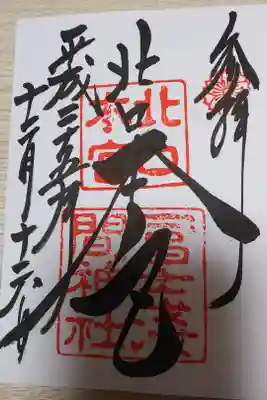 奉拝
北口本宮
冨士浅間神社
北口本宮
平成二十五年
十二月十六日